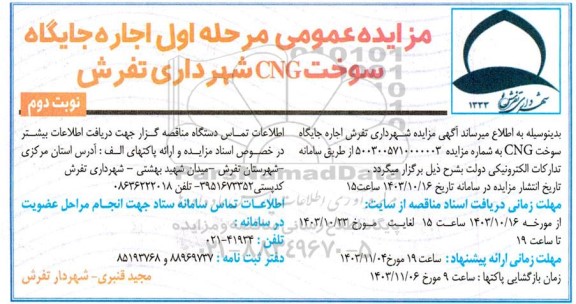 مزایده عمومی مرحله اول اجاره جایگاه
سوخت CNG شهرداری تفرش
نوبت دوم
شهرداری تفرش
۱۳۳۳
بدینوسیله به اطلاع میرساند آگهی مزایده شهرداری تفرش اجاره جایگاه
سوخت CNG به شماره مزایده ۵۰۰۳۰۰۵۷۱۰۰۰۰۰۳ از طریق سامانه
تدارکات الکترونیکی دولت بشرح ذیل برگزار میگردد.
تاریخ انتشار مزایده در سامانه تاریخ ۱۴۰۳/۱۰/۱۶ ساعت۱۵
مهلت زمانی دریافت اسناد مناقصه از سایت:
از مورخه ۱۴۰۳/۱۰/۱۶ ساعت ۱۵ لغایت مورخ ۱۴۰۳/۱۰/۲۳
تا ساعت ۱۹
مهلت زمانی ارائه پیشنهاد : ساعت ۱۹ مورخ۱۴۰۳/۱۱/۰۴
زمان بازگشایی پاکتها : ساعت ۹ مورخ ۱۴۰۳/۱۱/۰۶
اطلاعات تماس دستگاه مناقصه گزار جهت دریافت اطلاعات بیشتر
در خصوص اسناد مزایده و ارائه پاکتهای الف : آدرس استان مرکزی
-شهرستان تفرش -میدان شهید بهشتی - شهرداری تفرش
کدپستی۳۹۵۱۶۷۳۳۵۲- تلفن ۰۸۶۳۶۲۲۲۰۱۸
اطلاعات تماس سامانه ستاد جهت انجام مراحل عضویت
در سامانه :
تلفن : ۴۱۹۳۴-۰۲۱
دفتر ثبت نامه : ۸۸۹۶۹۷۳۷ و ۸۵۱۹۳۷۶۸
مجید قنبری- شهردار تفرش